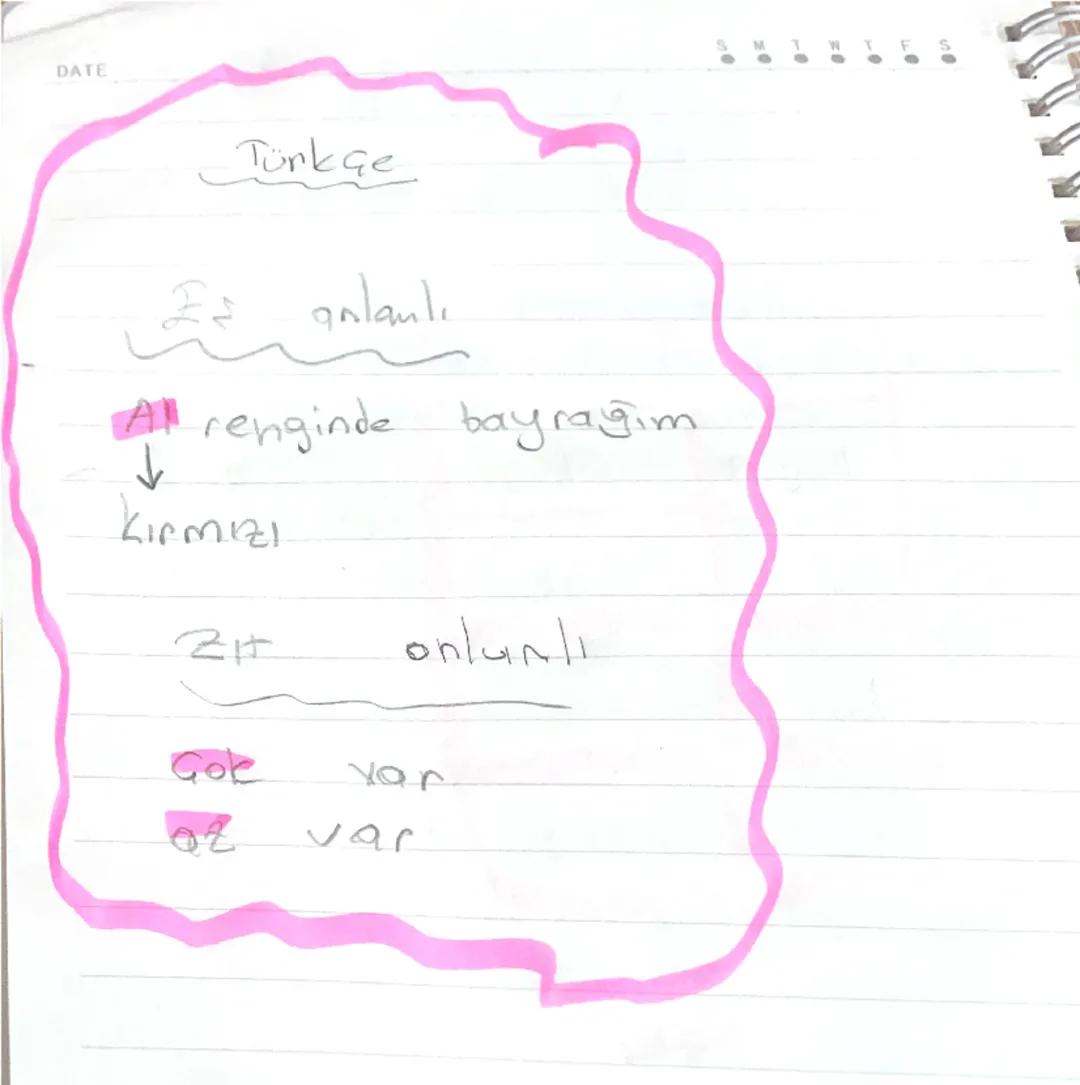 DATE
S M T W T F S
Türkçe
Eş anlamlı
Al renginde bayrağım
↓
Kırmızı
Zıt anlamlı
Çok var
az var